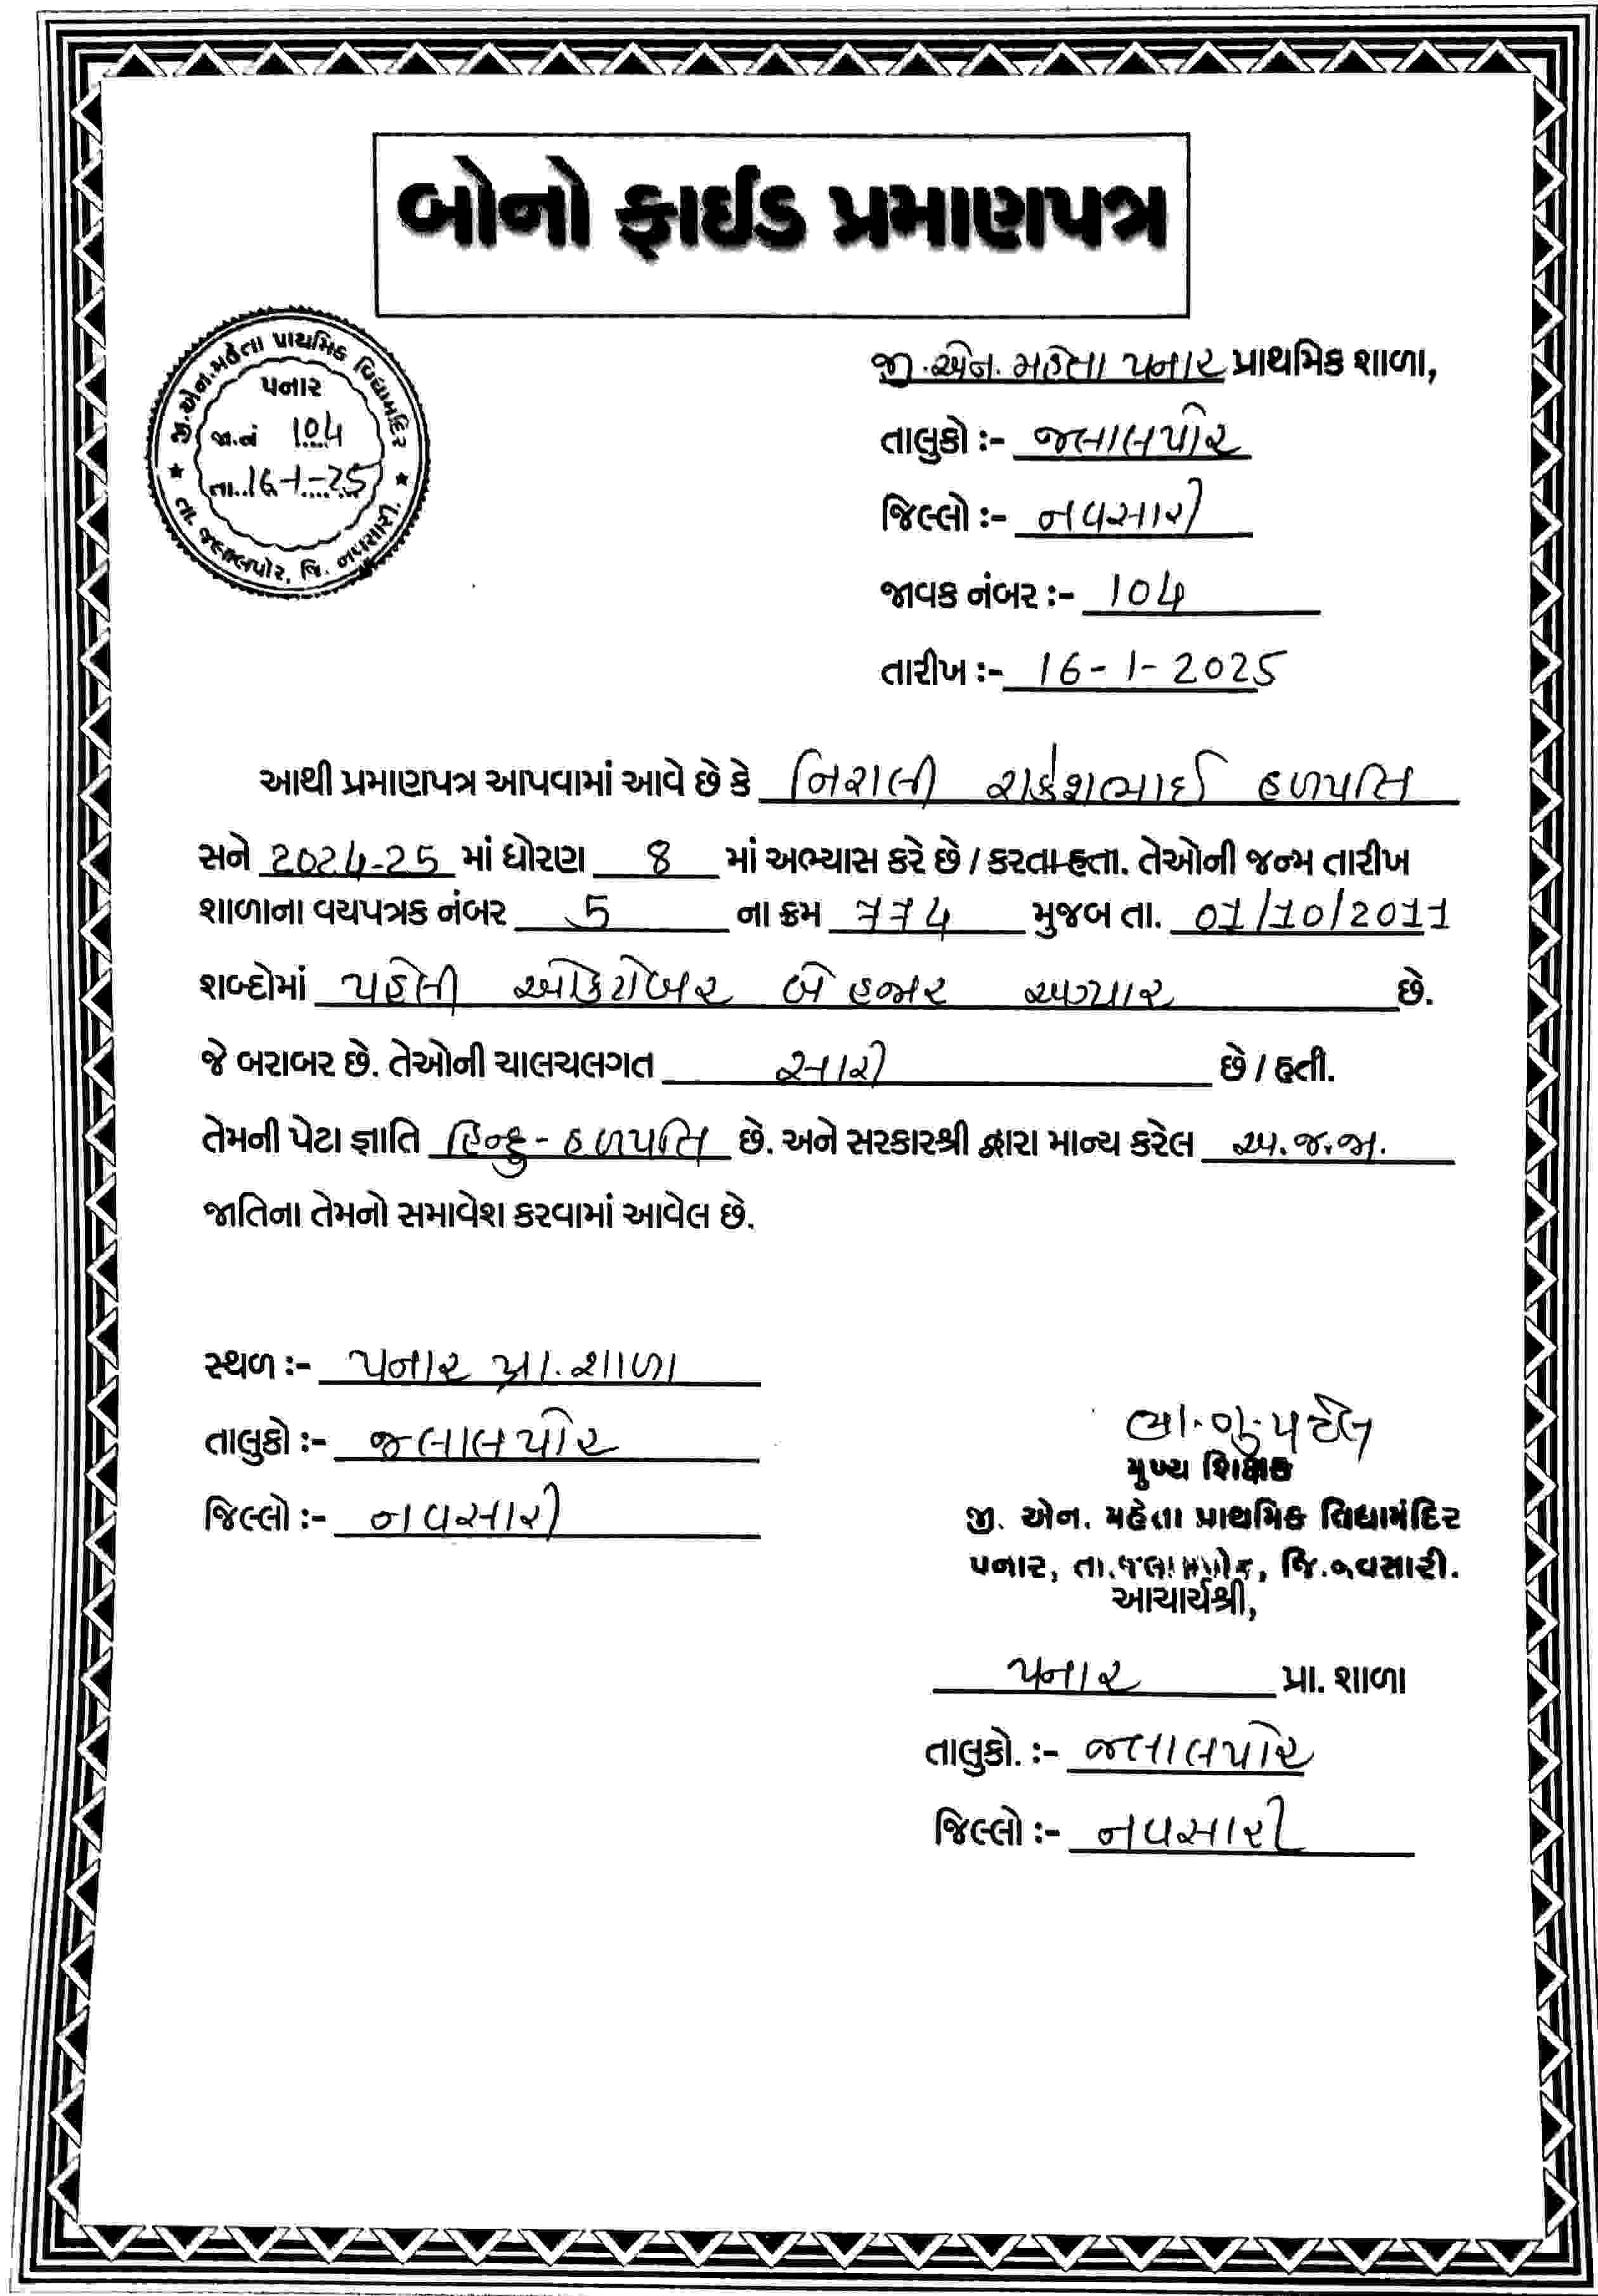 બોનો ફાઈડ પ્રમાણપત્ર
જી.એન.મહેતા પ્રાથમિક વિદ્યામંદિર
પનાર
જા.નં 104
તા. 16-1-25
તા. જલાલપોર, જિ. નવસારી.
જી.એન. મહેતા પનાર પ્રાથમિક શાળા,
તાલુકો :- જલાલપોર
જિલ્લો :- નવસારી
જાવક નંબર :- 104
તારીખ :- 16-1-2025
આથી પ્રમાણપત્ર આપવામાં આવે છે કે નિરાલી રાકેશભાઈ હળપતિ
સને 2024-25 માં ધોરણ 8 માં અભ્યાસ કરે છે / કરતા હતા. તેઓની જન્મ તારીખ
શાળાના વયપત્રક નંબર 5 ના ક્રમ 774 મુજબ તા. 01/10/2011
શબ્દોમાં પહેલી ઓક્ટોબર બે હજાર અગ્યાર છે.
જે બરાબર છે. તેઓની ચાલચલગત સારી છે / હતી.
તેમની પેટા જ્ઞાતિ હિન્દુ - હળપતિ છે. અને સરકારશ્રી દ્વારા માન્ય કરેલ અ.જ.જા.
જાતિના તેમનો સમાવેશ કરવામાં આવેલ છે.
સ્થળ :- પનાર પ્રા. શાળા
તાલુકો :- જલાલપોર
જિલ્લો :- નવસારી
પટેલ
મુખ્ય શિક્ષક
જી. એન. મહેતા પ્રાથમિક વિદ્યામંદિર
પનાર, તા.જલાલપોર, જિ.નવસારી.
આચાર્યશ્રી,
પનાર પ્રા. શાળા
તાલુકો. :- જલાલપોર
જિલ્લો :- નવસારી